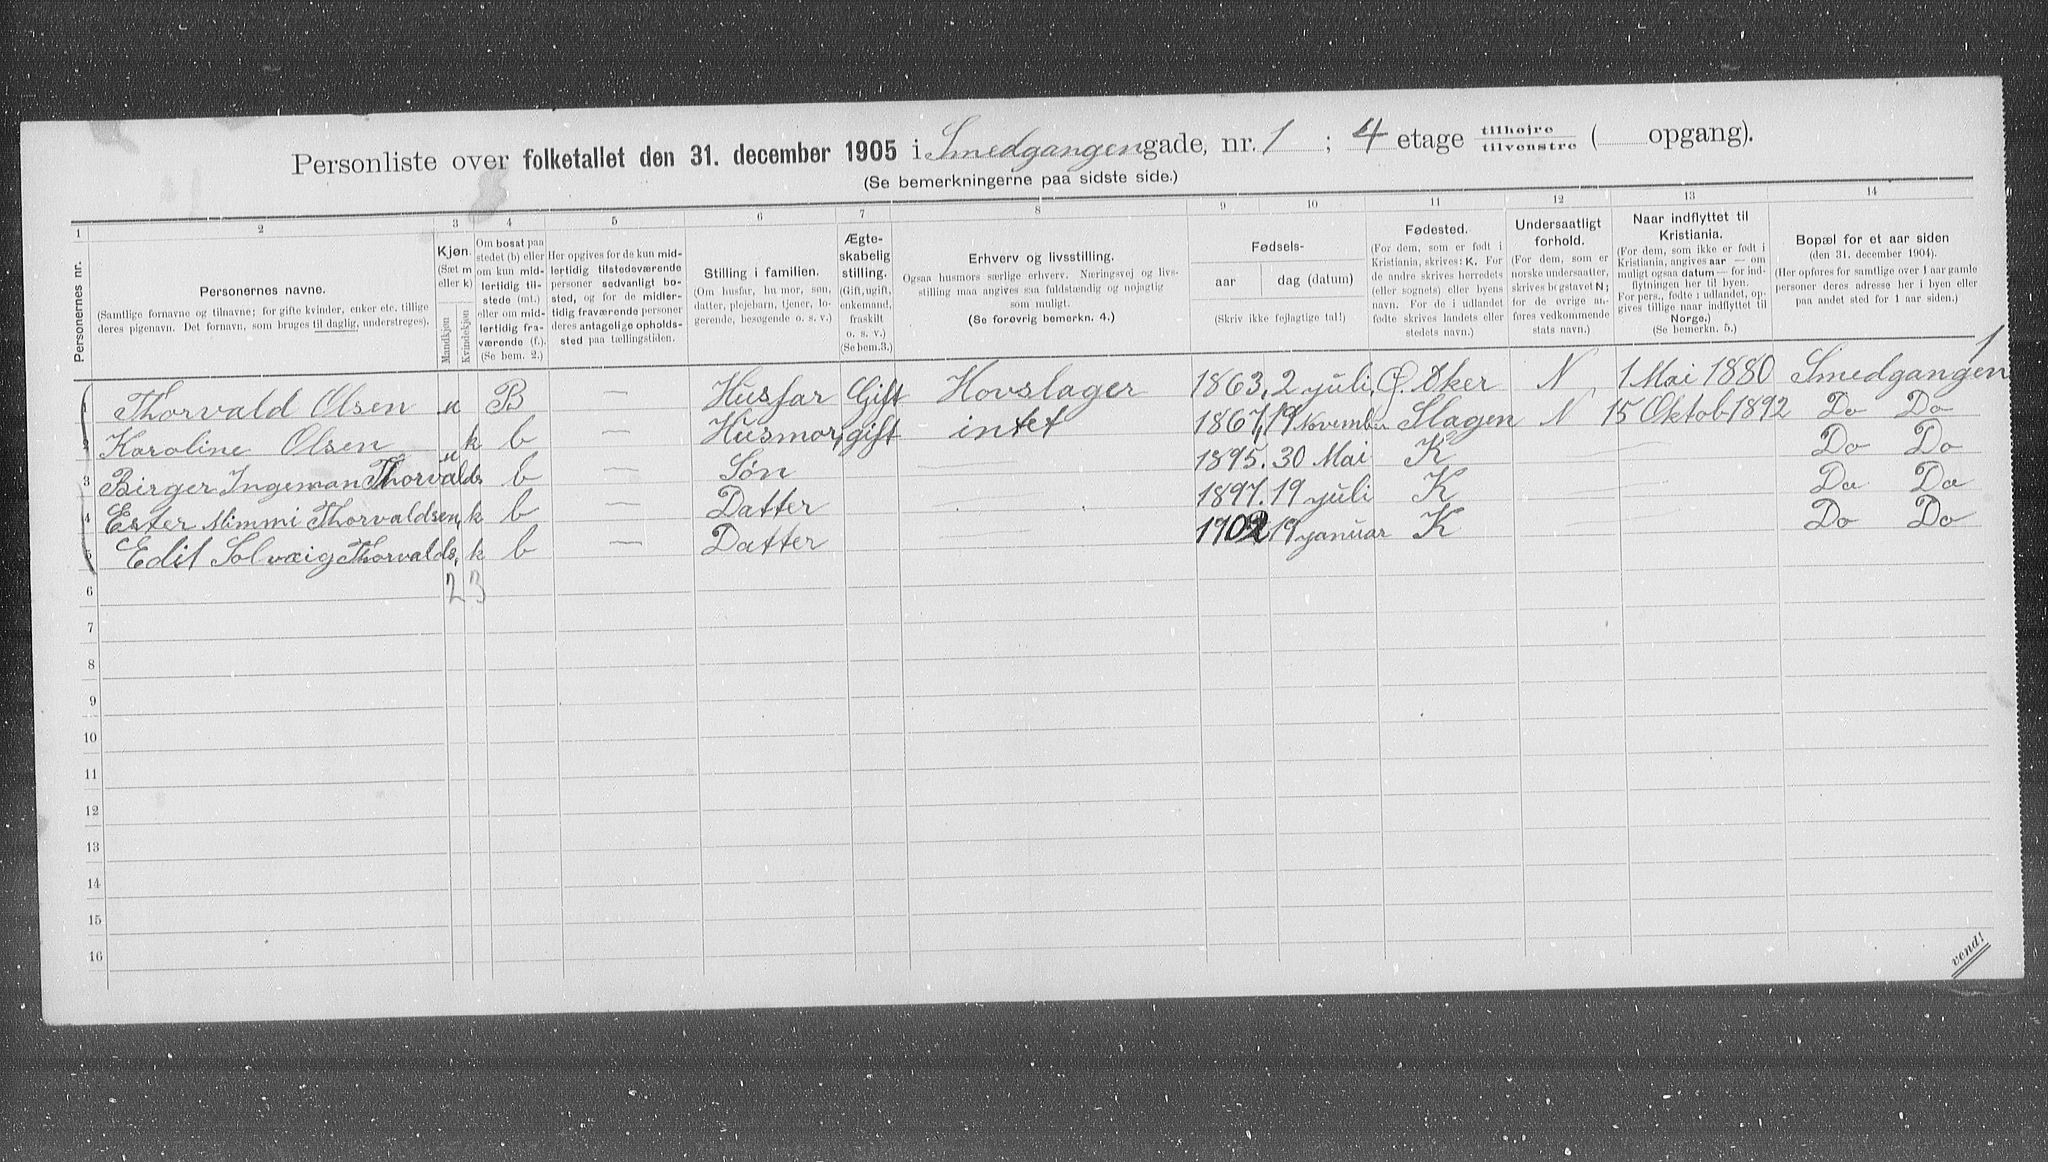 Personliste over folketallet den 31. december 1905 i Smedgangen gade, nr. 1 ; 4 etage tilhøjre tilvenstre ( opgang).
(Se bemerkningerne paa sidste side.)
1 2 3 4 5 6 7 8 9 10 11 12 13 14
Personernes nr.
Personernes navne.
(Samtlige fornavne og tilnavne; for gifte kvinder, enker etc. tillige
deres pigenavn. Det fornavn, som bruges til daglig, understreges).
Kjøn.
(Sæt m
eller k)
Mandkjøn
Kvindekjøn
Om bosat paa
stedet (b) eller
om kun mid-
lertidig til-
stede (mt.)
eller om mid-
lertidig fra-
værende (f.).
(Se bem. 2.)
Her opgives for de kun mid-
lertidig tilstedeværende
personer sedvanligt bo-
sted, og for de midler-
tidig fraværende personer
deres antagelige opholds-
sted paa tællingstiden.
Stilling i familien.
(Om husfar, husmor, søn,
datter, plejebarn, tjener, lo-
gerende, besøgende o. s. v.)
Ægte-
skabelig
stilling.
(Gift, ugift,
enkemand,
fraskilt
o. s. v.)
(Se bem.3.)
Erhverv og livsstilling.
Ogsaa husmors særlige erhverv. Næringsvej og livs-
stilling maa angives saa fuldstændig og nøjagtig
som muligt.
(Se forøvrig bemerkn. 4.)
Fødsels-
aar dag (datum)
(Skriv ikke fejlagtige tal!)
Fødested.
(For dem, som er født i
Kristiania, skrives: K. For
de andre skrives herredets
(eller sognets) eller byens
navn. For de i udlandet
fødte skrives landets eller
stedets navn.)
Undersaatligt
forhold.
(For dem, som er
norske undersaatter,
skrives bogstavet N;
for de øvrige an-
føres vedkommende
stats navn.)
Naar indflyttet til
Kristiania.
(For dem, som ikke er født i
Kristiania, angives aar — om
muligt ogsaa datum — for ind-
flytningen her til byen.
For pers., fødte i udlandet, op-
gives tillige naar indflyttet til
Norge.)
(Se bemerkn. 5.)
Bopæl for et aar siden
(den 31. december 1904).
(Her opføres for samtlige over 1 aar gamle
personer deres adresse her i byen eller
paa andet sted for 1 aar siden.)
1 Thorvald Olsen m B — Husfar Gift Hovslager 1863. 2 juli Ø. Aker N 1 Mai 1880 Smedgangen 1
2 Karoline Olsen k b — Husmor gift intet 1867. 19 November Slagen N 15 Oktob 1892 Do Do
3 Birger Ingeman Thorvalds m b — Søn 1895. 30 Mai K Do Do
4 Ester Mimmi Thorvaldsen k b — Datter 1897. 19 juli K Do Do
5 Edit Solvæig Thorvalds. k b — Datter 1902 19 januar K Do Do
6 2 3
7
8
9
10
11
12
13
14
15
16
vend!